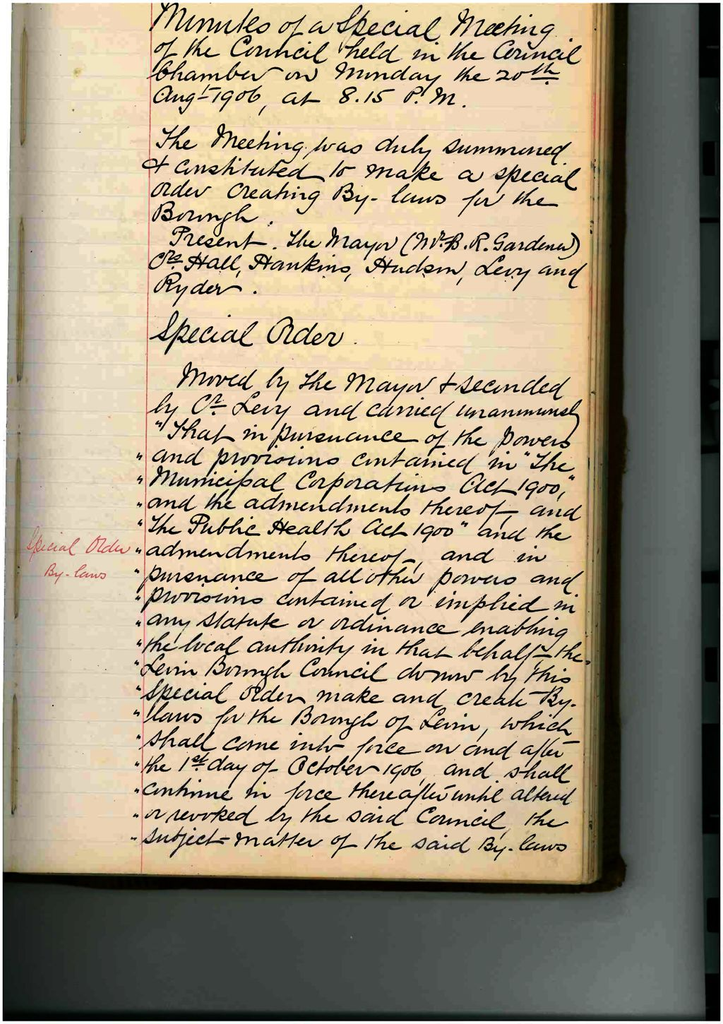 Minutes of a Special Meeting
of the Council held in the Council
Chamber on Monday the 20th
Augt 1906, at 8.15 P.M.
The Meeting was duly summoned
& constituted to make a special
order creating By-laws for the
Borough.
Present. The Mayor (Mr B. R. Gardener)
Crs Hall, Hankins, Hudson, Levy and
Ryder.
Special Order.
Moved by the Mayor & seconded
by Cr Levy and carried unanimously
"That in pursuance of the powers
" and provisions contained in "The
" Municipal Corporations Act 1900,"
" and the admendments thereof, and
" "The Public Health Act 1900" and the
Special Order
" admendments thereof, and in
By-laws
" pursuance of all other powers and
" provisions contained or implied in
" any statute or ordinance enabling
" the local authority in that behalf the
" Levin Borough Council do now by this
" Special Order make and create By-
" laws for the Borough of Levin, which
" shall come into force on and after
" the 1st day of October 1906, and shall
" continue in force thereafter until altered
" or revoked by the said Council, the
" subject-matter of the said By-laws